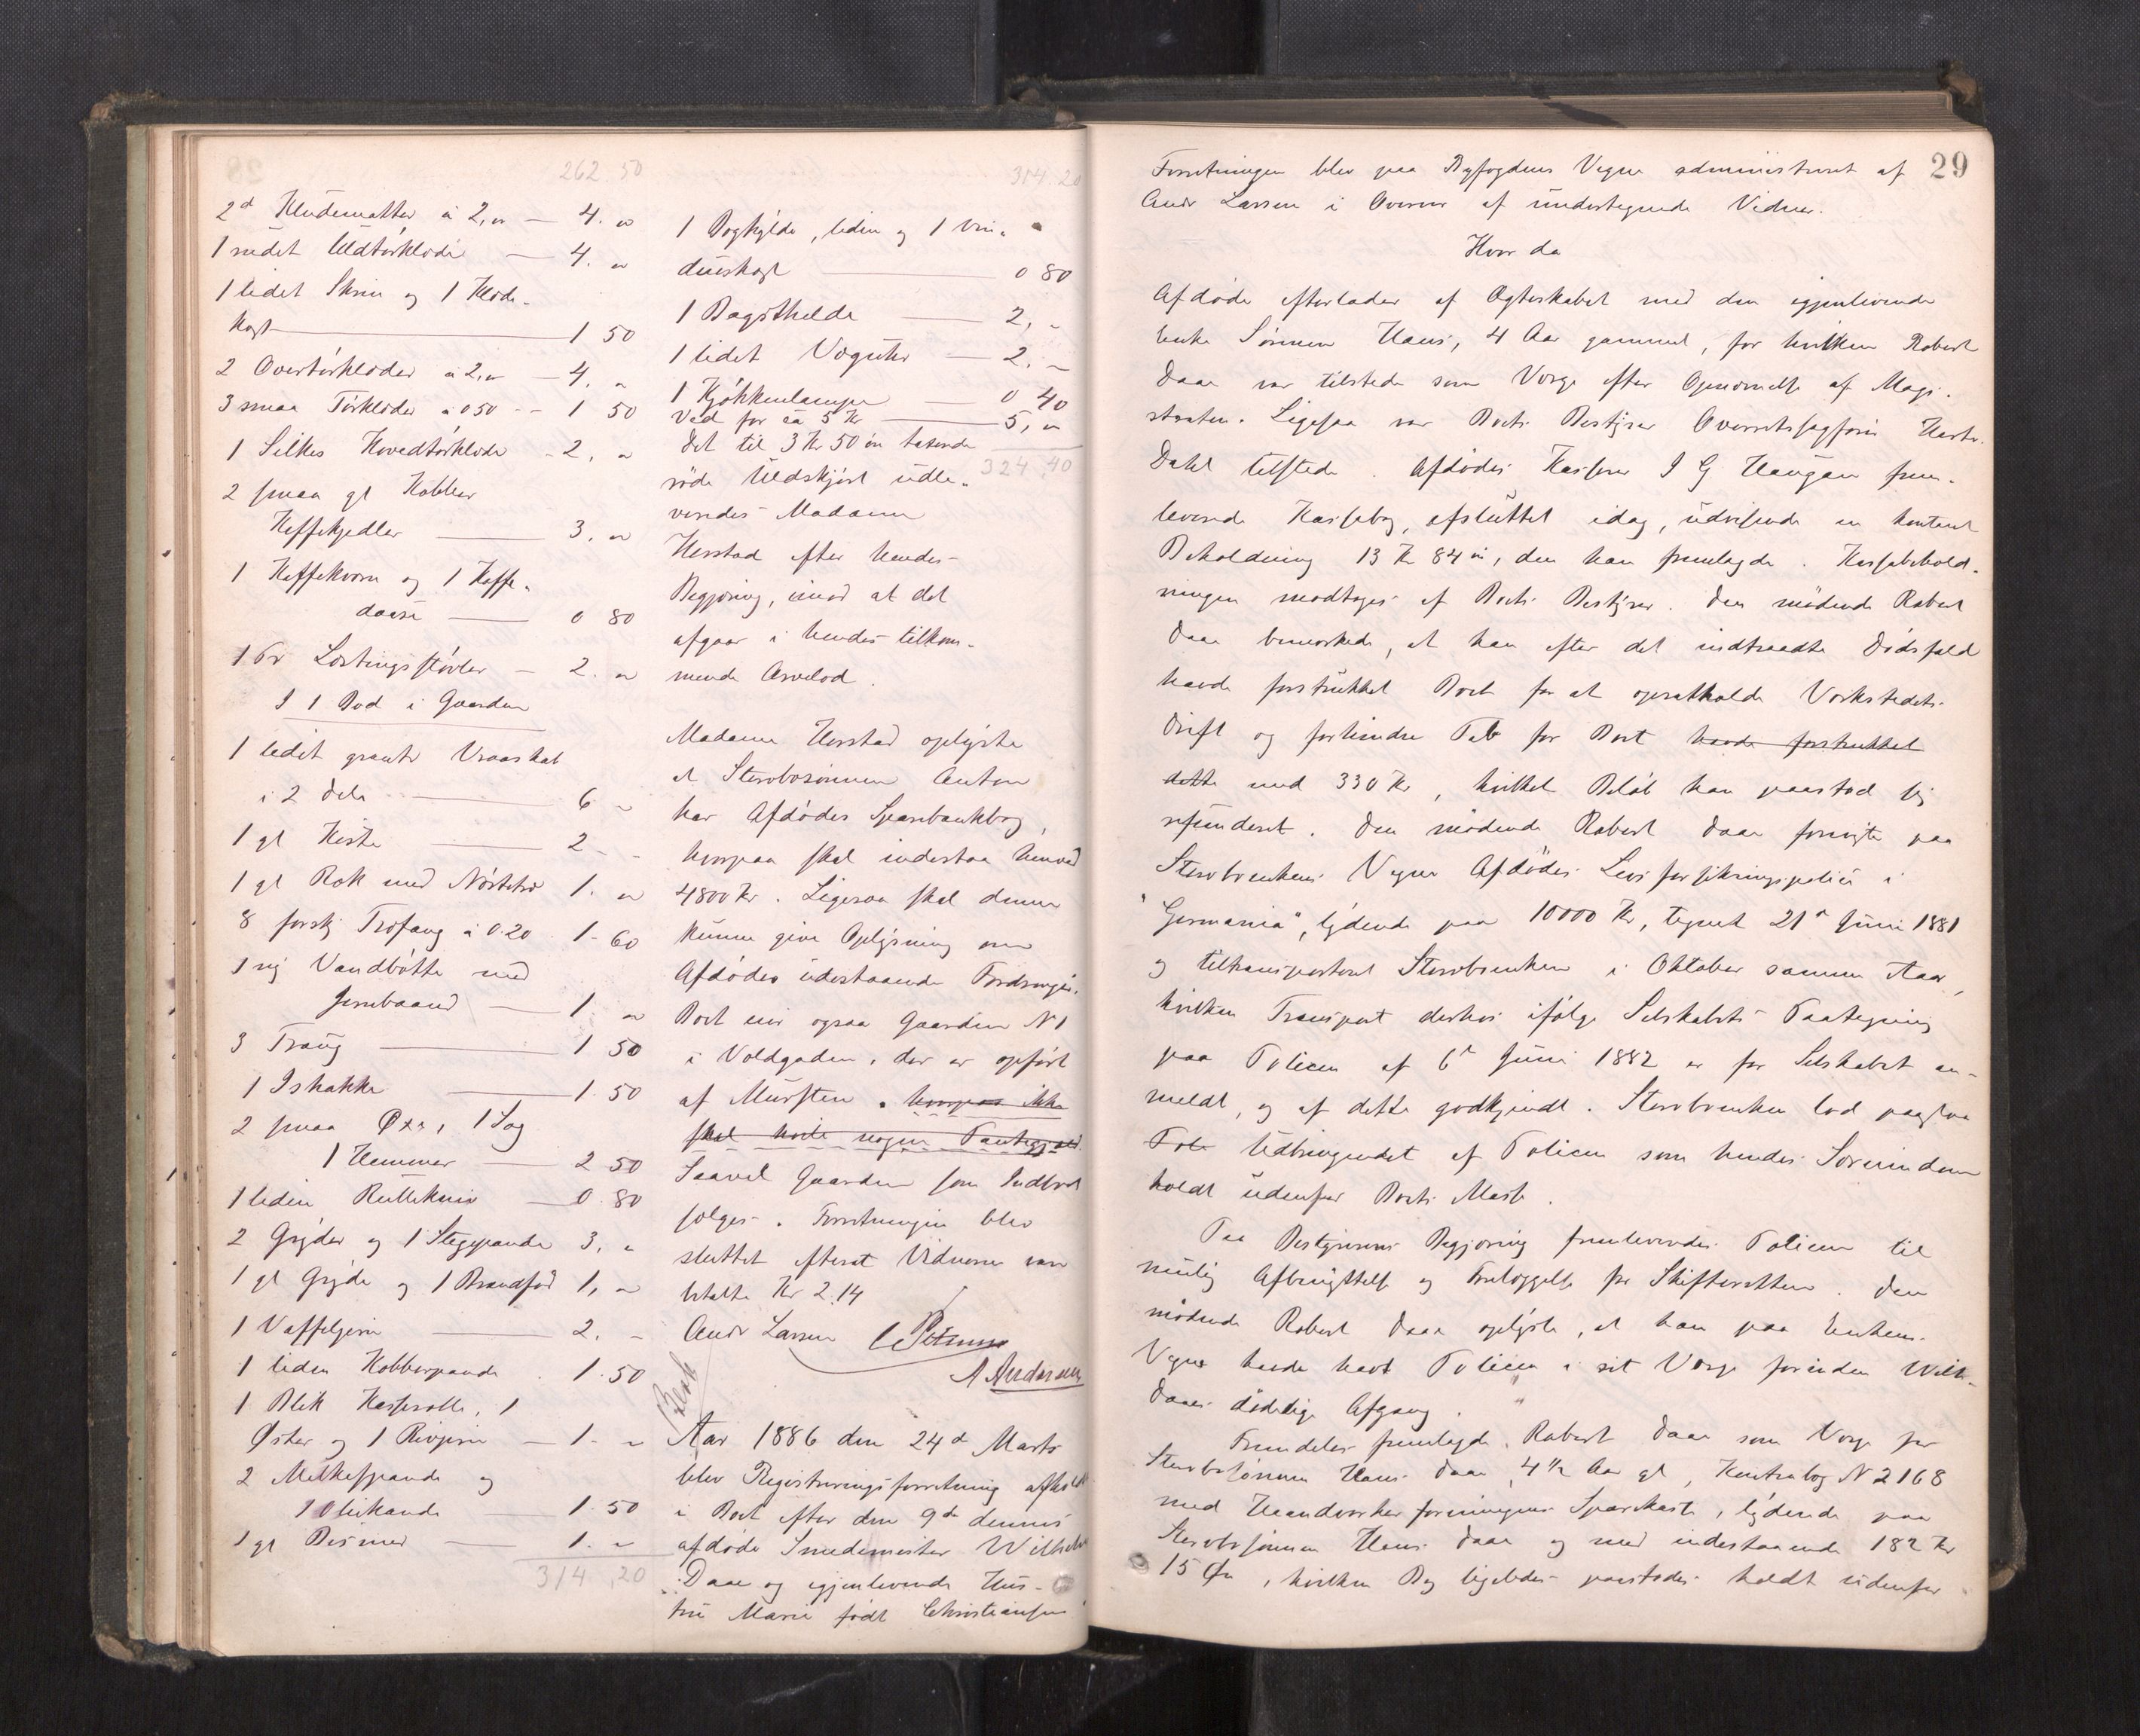 262.50
2d Kludematter à 2,„ — 4. „
1 rudet Uldtørklæde — 4. „
1 lidet Skrin og 1 Klæde-
kost — 1 50
2 Overtørklæder à 2,„ — 4. „
3 smaa Tørklæder à 0 50 — 1 50
1 Silkes Hovedtørklæde - 2, „
2 smaa gl Kobber
Kaffekjedler — 3. „
1 Kaffekværn og 1 Kaffe-
daase — 0 80
1 Pr Lastingsstøvler — 2. „
I 1 Bod i Gaarden
1 lidet graat Vraaskab
i 2 dele — 6 „
1 gl Kiste — 2 -
1 gl Rok med 1. „
8 forskj Træfang à 0.20 1.60
1 ny Vandbøtte med
Jernbaand — 1 „
3 Traug — 1 50
1 Ishakke — 1.50
2 smaa Øxe, 1 Sag
1 Hammer — 2 50
1 liden Rullekniv — 0.80
2 Gryder og 1 Stegepande 3, „
1 gl Gryde og 1 Brandfod 1, „
1 Vaffeljern — 2. „
1 liden Kobberpande . 1.50
1 Blik Kasserolle, 1
Øster og 1 Rivjern — 1. „
2 Melkespande og
1 Oliekande — 1.50
1 gl Bismer — 1. „
314,20
314.20
1 Boghylde, liden og 1 Vin-
dueskost — 0 80
1 Bogsthelde — 2, „
1 lidet Væguhr — 2. „
1 Kjøkkenlampe — 0 40
Ved for ca 5 Kr — 5, „
324.40
Det til 3 Kr 50 øre taxerede
røde Uldskjørt udle-
veredes Madame
Herstad efter hendes
Begjæring, imod at det
afgaar i hendes tilkom-
mende Arvelod.
Madame Herstad oplyste
at Stervbosønnen Anton
har Afdødes Sparebankbog,
hvorpaa skal indestaa henved
4800 Kr. Ligesaa skal denne
kunne give Oplysning om
Afdødes udestaaende Fordringer.
Boet eier ogsaa Gaarden N 1
i Voldgaden, der er opført
af Mursten. hvorpaa ikke
skal hvile nogen Pantegjæld.
Saavel Gaarden som Indboet
sælges. Forretningen blev
sluttet efterat Vidnerne vare
betalte Kr 2.14
Andr Larsen C Petersen
A Andersen
Aar 1886 den 24d Marts
blev Registreringsforretning afholdt
i Boet efter den 9de dennes
afdøde Smedemester Wilhelm
Daae og igjenlevende Hus-
tru Marie født Christiansen
29
Forretningen blev paa Byfogdens Vegne administreret af
Andr Larsen i Overvær af undertegnede Vidner.
Hvor da
Afdøde efterlader af Ægteskabet med den igjenlevende
Enke Sønnen Hans, 4 Aar gammel, for hvilken Robert
Daae var tilstede som Værge efter Opnævnelse af Magi-
straten. Ligesaa var Boets Bestyrer Overretssagfører
Dahl tilstede. Afdødes Kasserer I G Haugan frem-
leverede Kassebog, afsluttet idag, udvisende en kontant
Beholdning 13 Kr 84 øre, den han fremlagde. Kassebehold-
ningen modtoges af Boets Bestyrer. Den mødende Robert
Daae bemærkede, at han efter det indtraadte Dødsfald
havde forstrukket Boet for at opretholde Værkstedets
Drift og forhindre Tab for Boet havde forstrukket
dette med 330 Kr, hvilket Beløb han paastod sig
refunderet. Den mødende Robert Daae foreviste paa
Stervboenkens Vegne Afdødes Livsforsikringspolice i
"Germania", lydende paa 10000 Kr, tegnet 21de Juni 1881
og tiltransporteret Stervboenken i Oktober samme Aar,
hvilken Transport derhos ifølge Selskabets Paategning
paa Policen af 6te Juni 1882 er for Selskabet an-
meldt, og af dette godkjendt. Stervboenken lod paastaa
Poli Udbringendet af Policen som hendes Særeiendom
holdt udenfor Boets Masse.
Paa Bestyrerens Begjæring fremleveredes Policen til
mulig Afbenyttelse og Fremlæggelse for Skifteretten. Den
mødende Robert Daae oplyste, at han paa Enkens
Vegne havde havt Policen i sit Værge forinden Wilh.
Daaes dødelige Afgang.
Fremdeles fremlagde Robert Daae som Værge for
Stervbosønnen Hans Daae, 4 1/2 Aar gl, Kontrabog N 2168
med Haandværkerforeningens Sparekasse, lydende paa
Stervbosønnen Hans Daae og med indestaaende 182 Kr
15 Øre, hvilken Bog ligeledes paastodes holdt udenfor